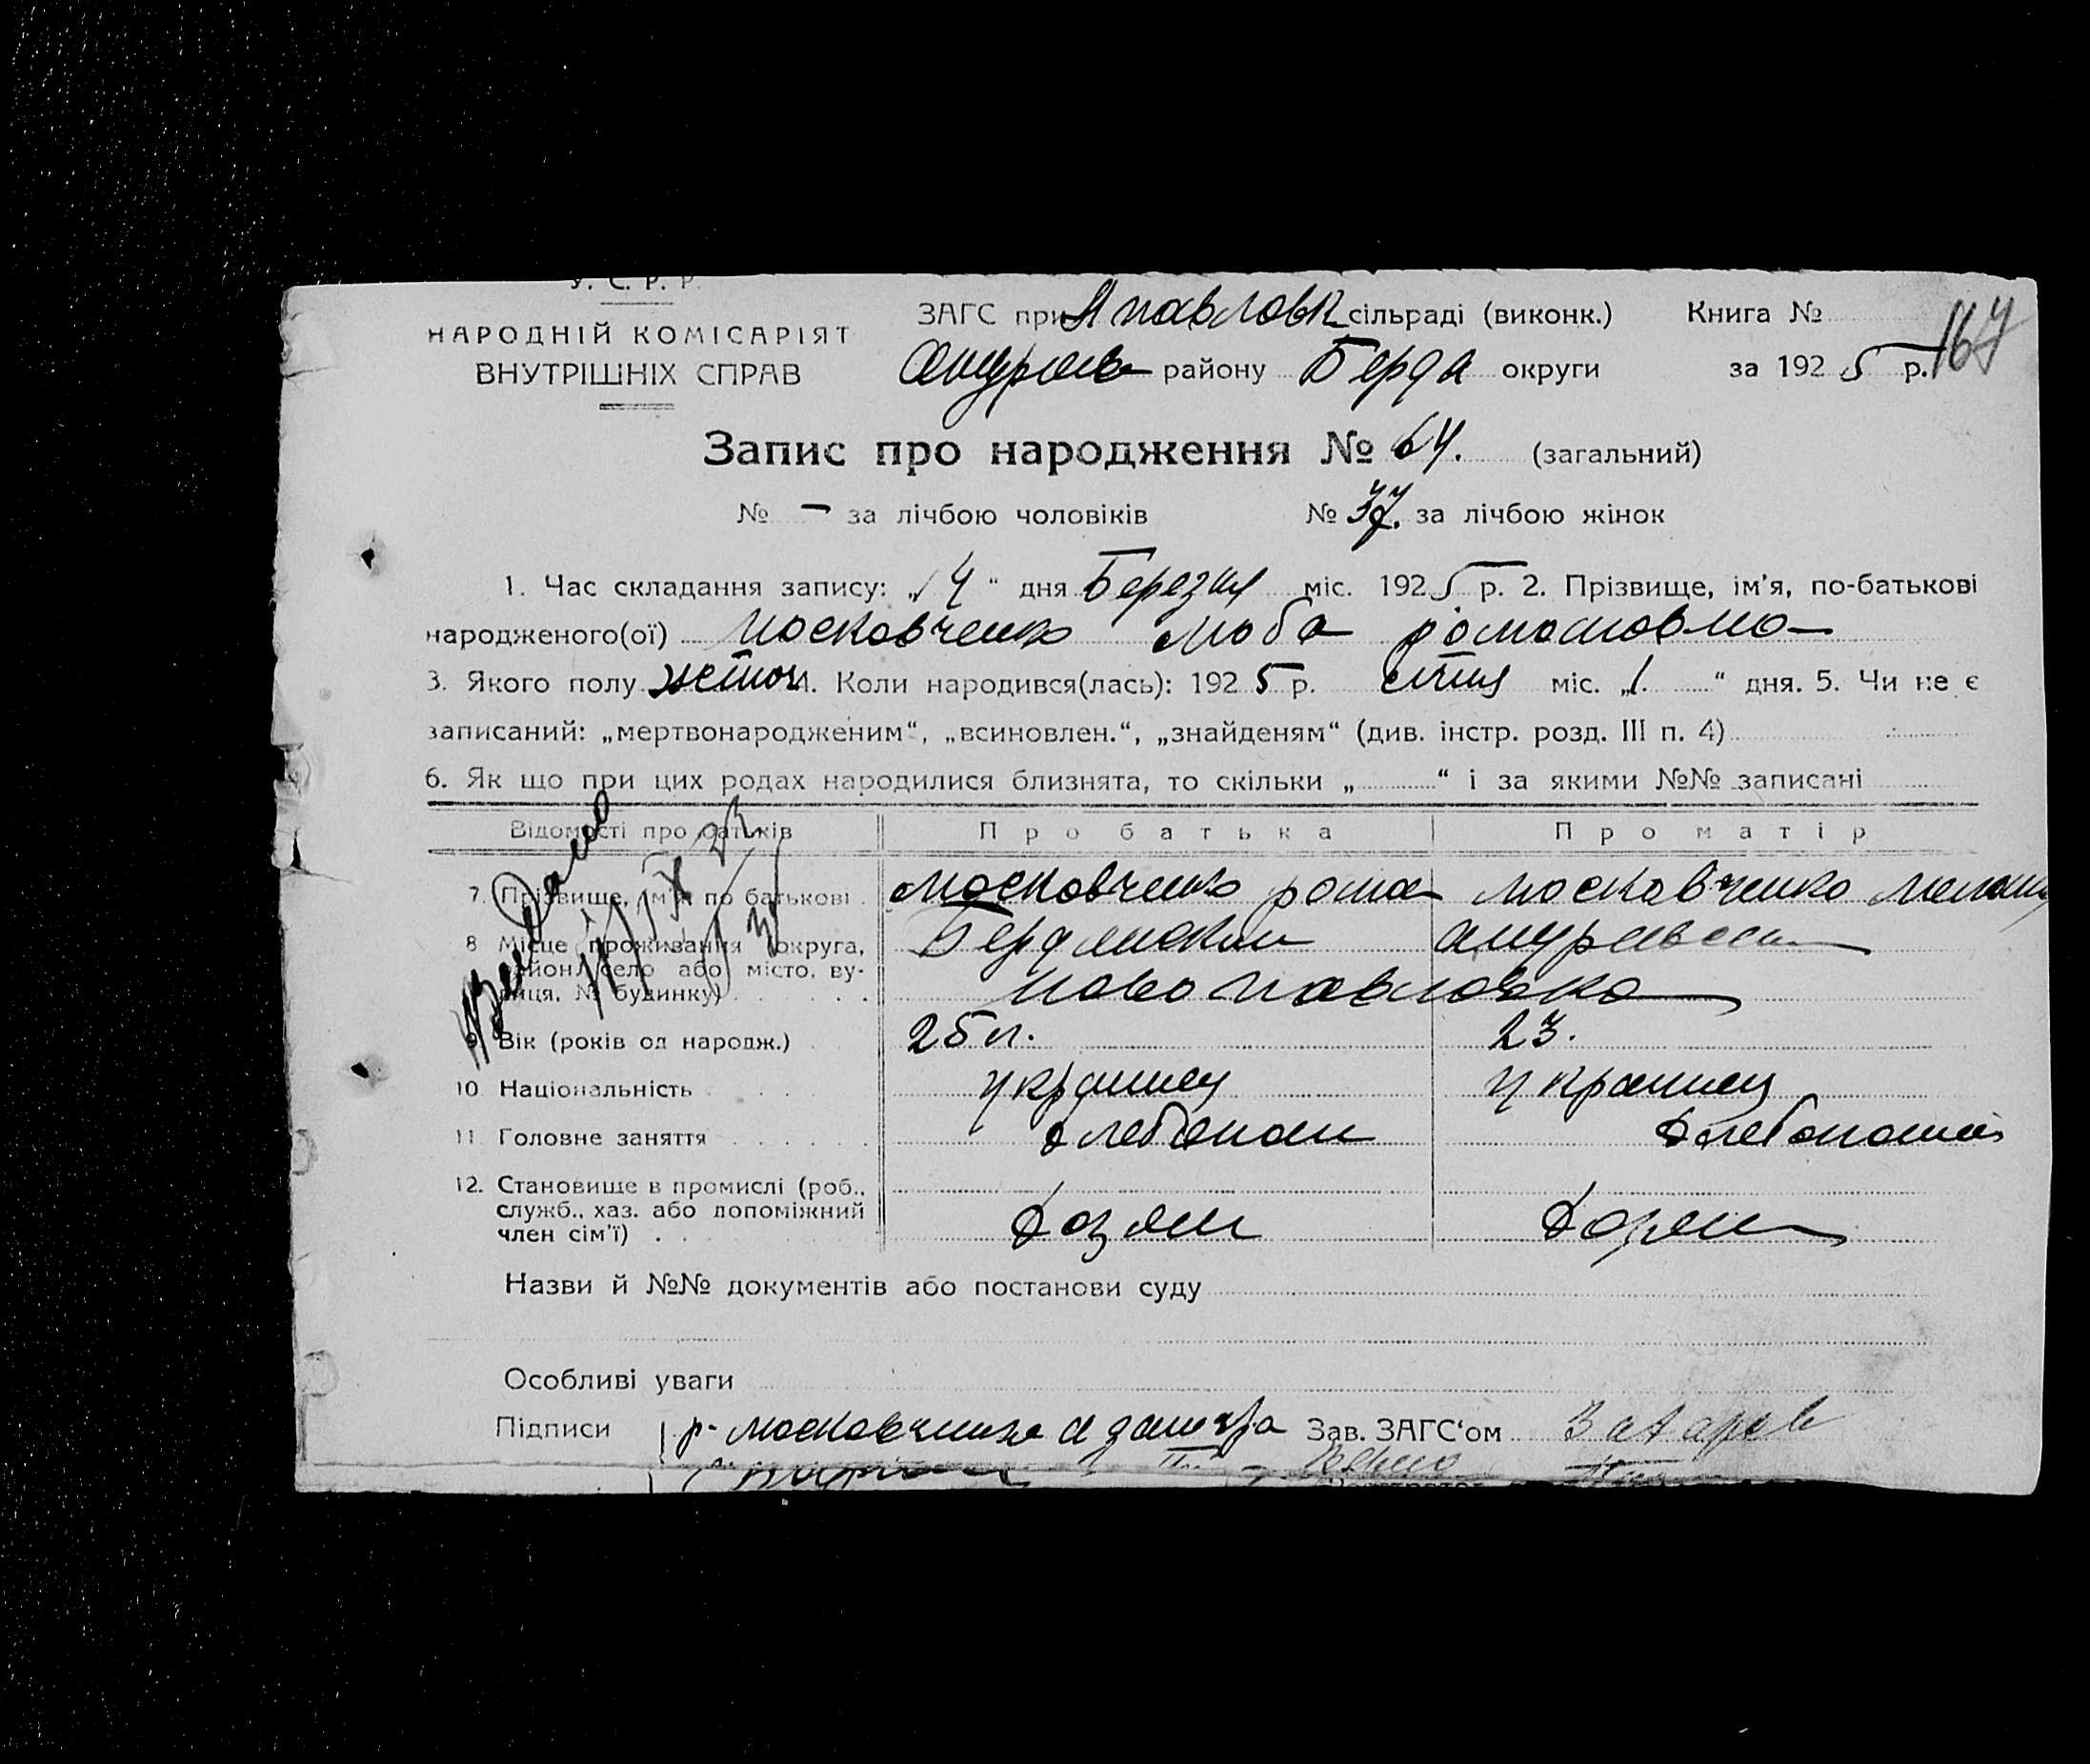 У. С. Р. Р.
НАРОДНІЙ КОМІСАРІЯТ
ВНУТРІШНІХ СПРАВ
ЗАГС при павловк сільраді (виконк.) Книга №
167
району Берда округи за 1925 р.
Запис про народження № 64. (загальний)
№ – за лічбою чоловіків № 37. за лічбою жінок
1. Час складання запису: „14“ дня Березня міс. 1925 р. 2. Прізвище, ім'я, по-батькові
народженого(ої) Московченко Люба романовна
3. Якого полу жіноч 4. Коли народився(лась): 1925 р. січня міс. „1.“ дня. 5. Чи не є
записаний: „мертвонародженим“, „всиновлен.“, „знайденям“ (див. інстр. розд. III п. 4)
6. Як що при цих родах народилися близнята, то скільки „ “ і за якими №№ записані
Відомості про батьків Про батька Про матір
7. Прізвище, ім'я, по батькові Московченко рома Московченко
8 Місце проживання (округа,
район, село або місто, ву-
лиця, № будинку)
Бердянский
ново павловка
9 Вік (років од народж.) 25 л. 23.
10 Національність украинец украинец
11 Головне заняття
12. Становище в промислі (роб.,
служб., хаз. або допоміжний
член сім'ї)
хозяин хозяин
Назви й №№ документів або постанови суду
Особливі уваги
Підписи р. московченко Зав. ЗАГС‘ом